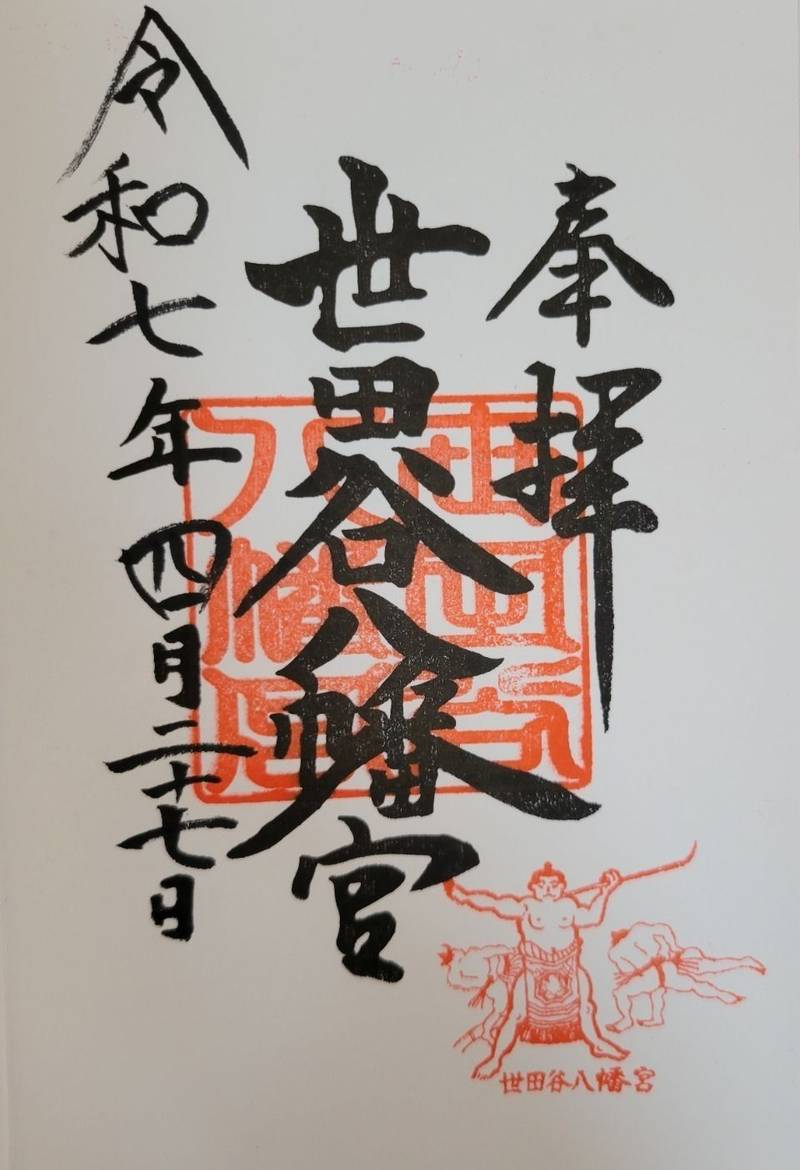 奉拝
世田谷八幡宮
令和七年四月二十七日
世田谷八幡宮
世田谷八幡宮